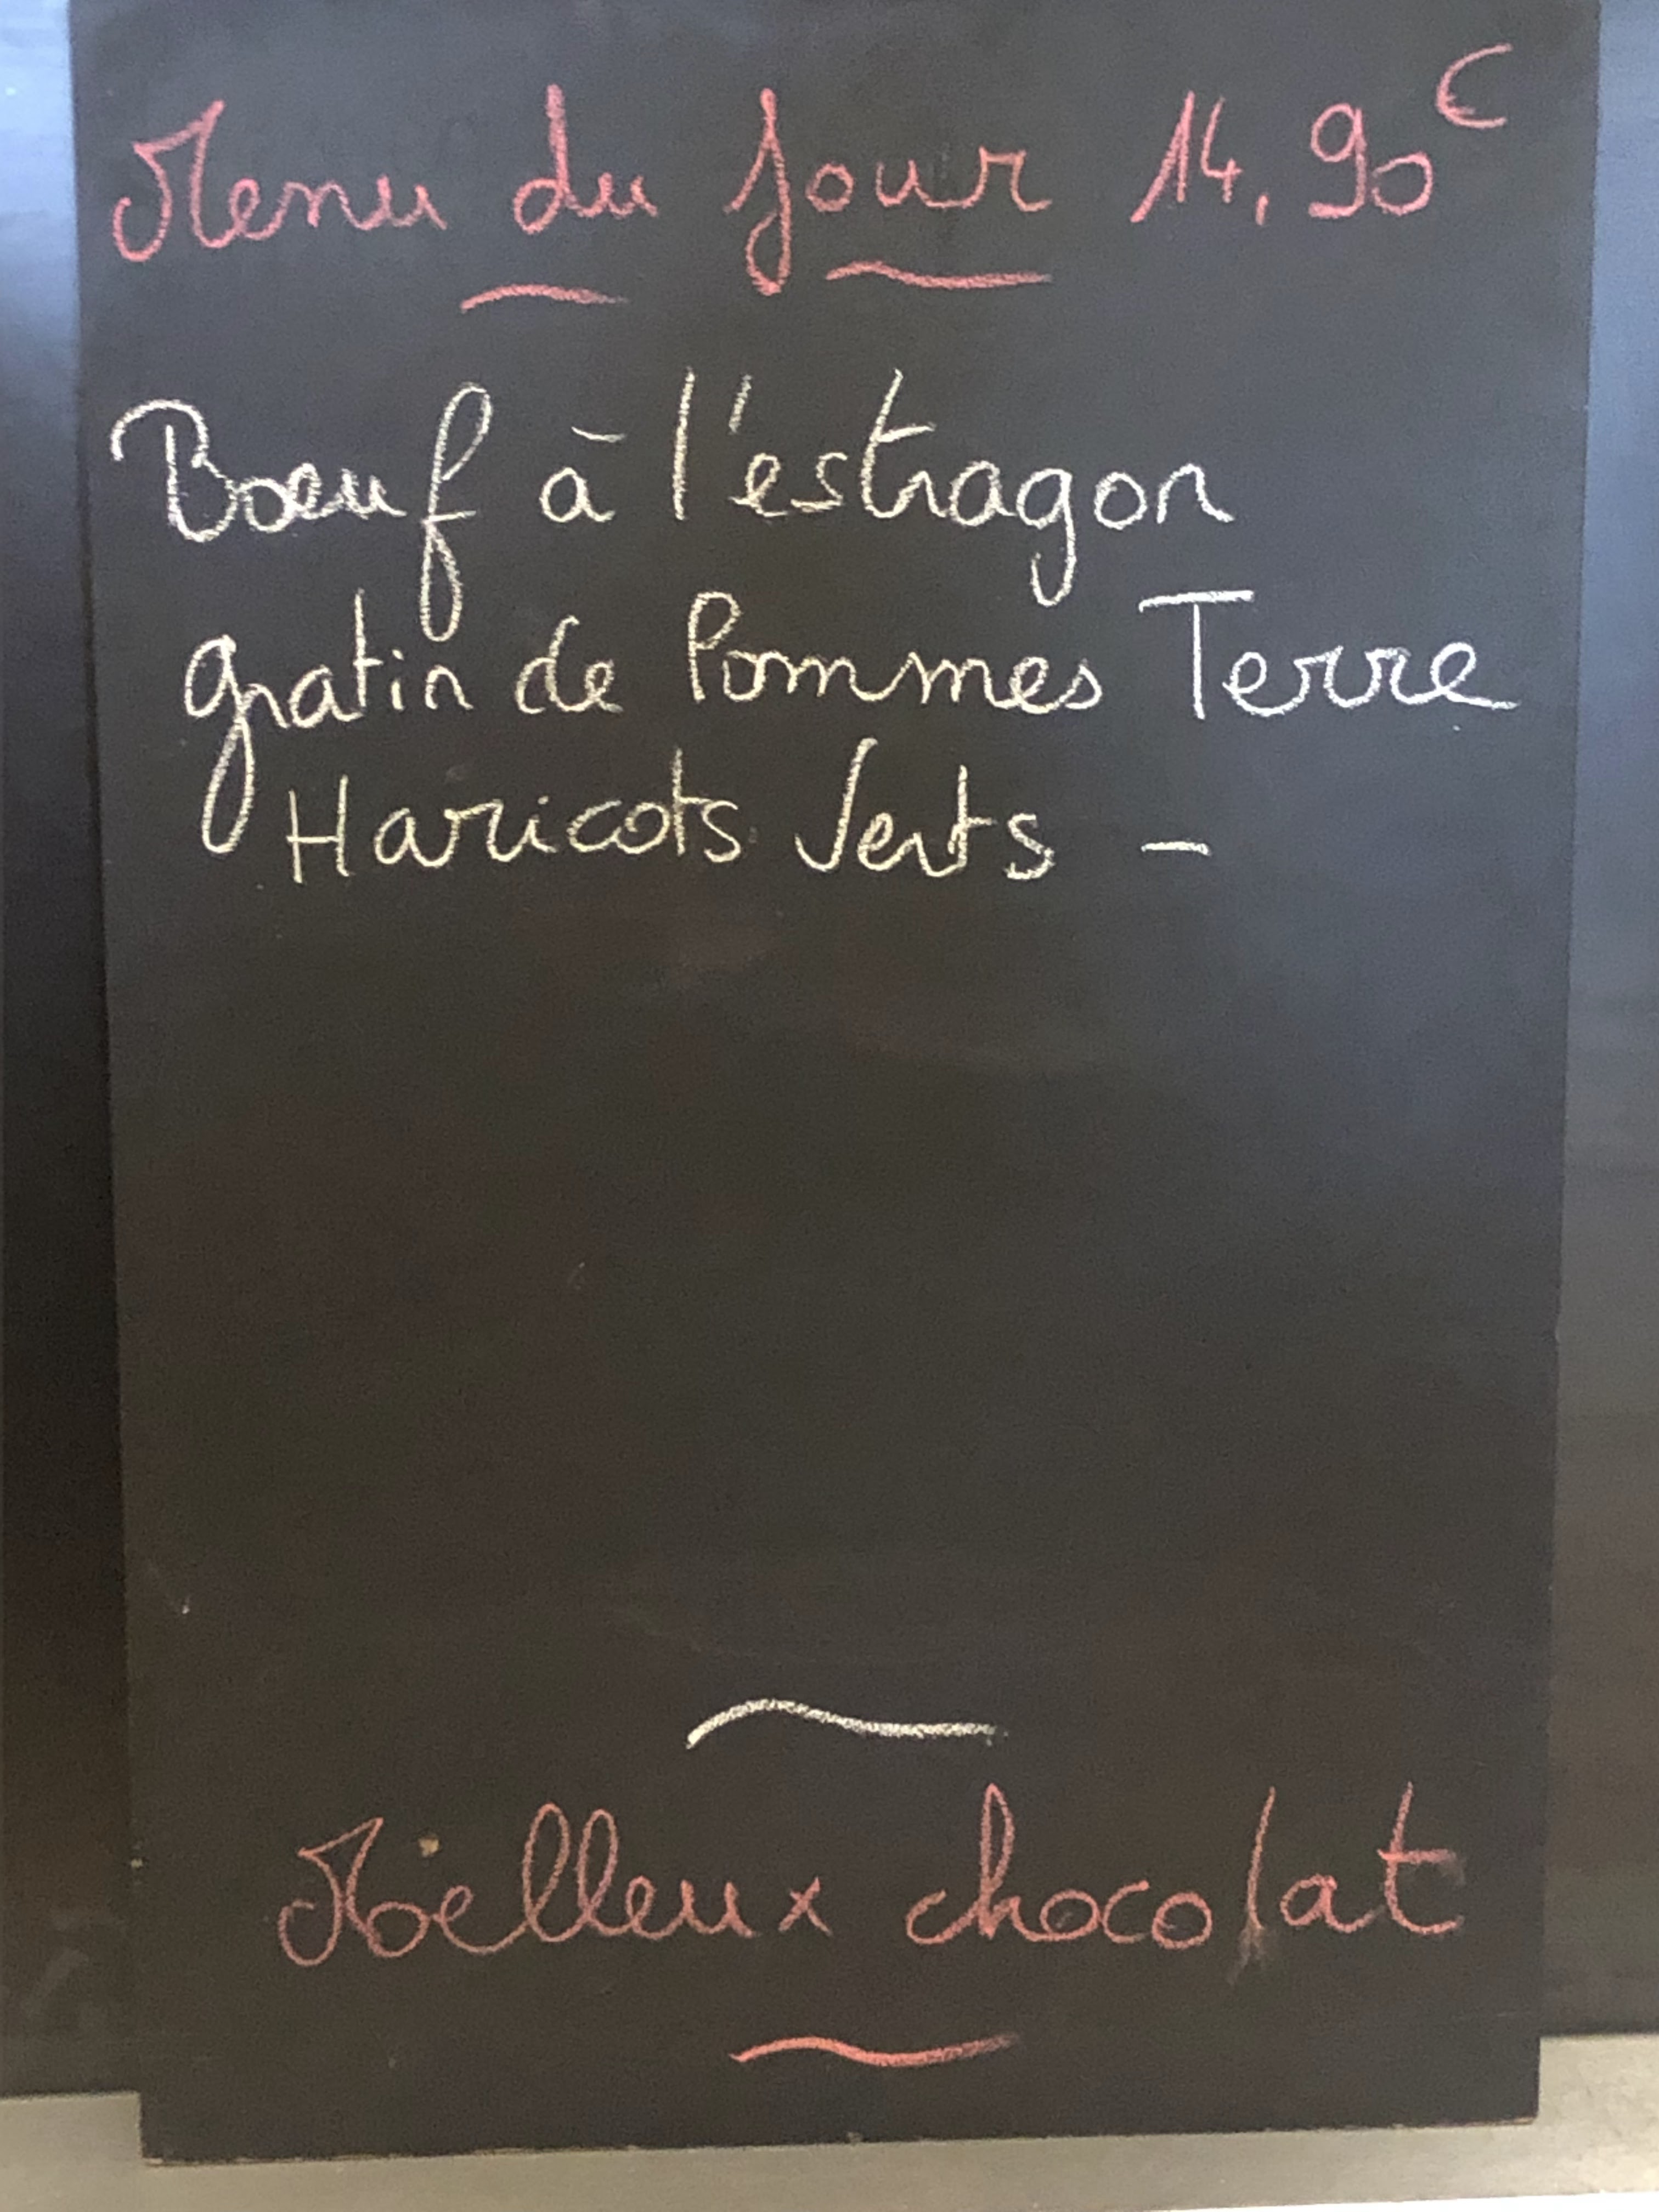 Menu du Jour 14,90€
Bœuf à l'estragon
gratin de Pommes Terre
Haricots Verts -
Moelleux chocolat